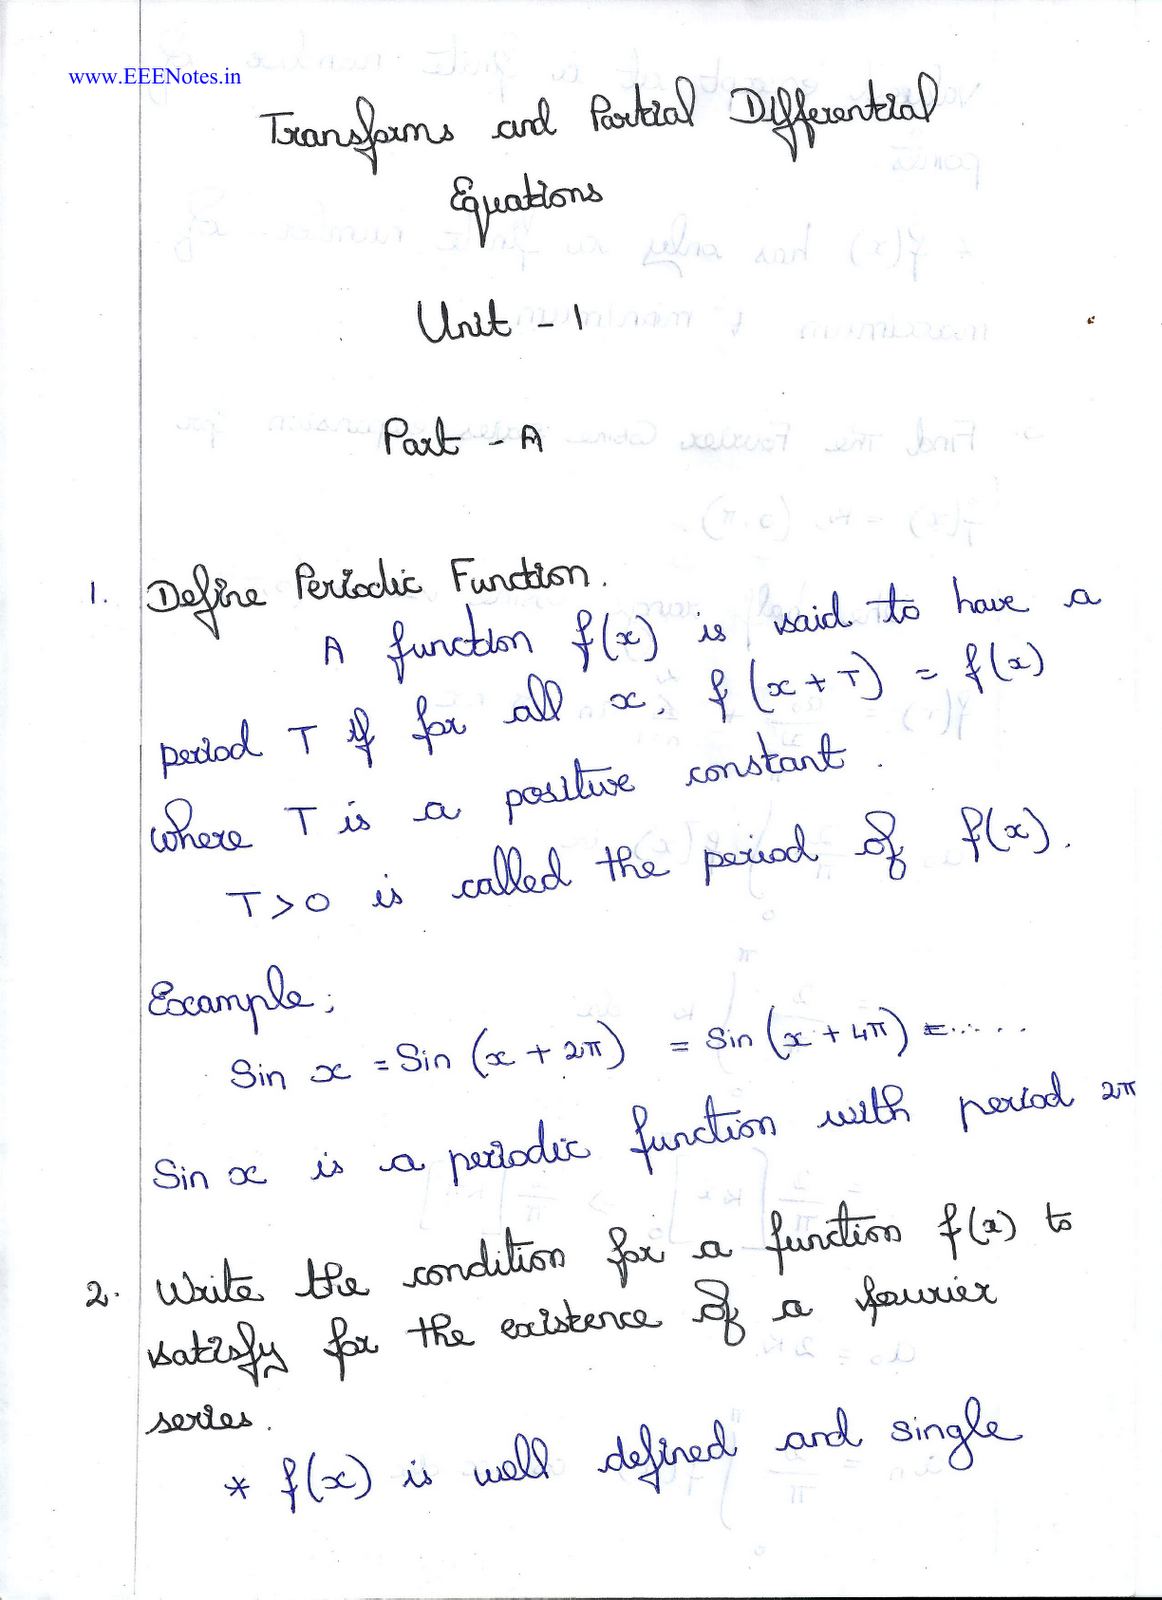 www.EEENotes.in
Transforms and Partial Differential
Equations
Unit - 1
Part - A
1. Define Periodic Function.
A function f(x) is said to have a
period T if for all x, f(x+T) = f(x)
where T is a positive constant.
T>0 is called the period of f(x).
Example;
Sin x = Sin (x + 2π) = Sin (x + 4π) = ......
Sin x is a periodic function with period 2π
2. Write the condition for a function f(x) to
satisfy for the existence of a fourier
series.
* f(x) is well defined and single